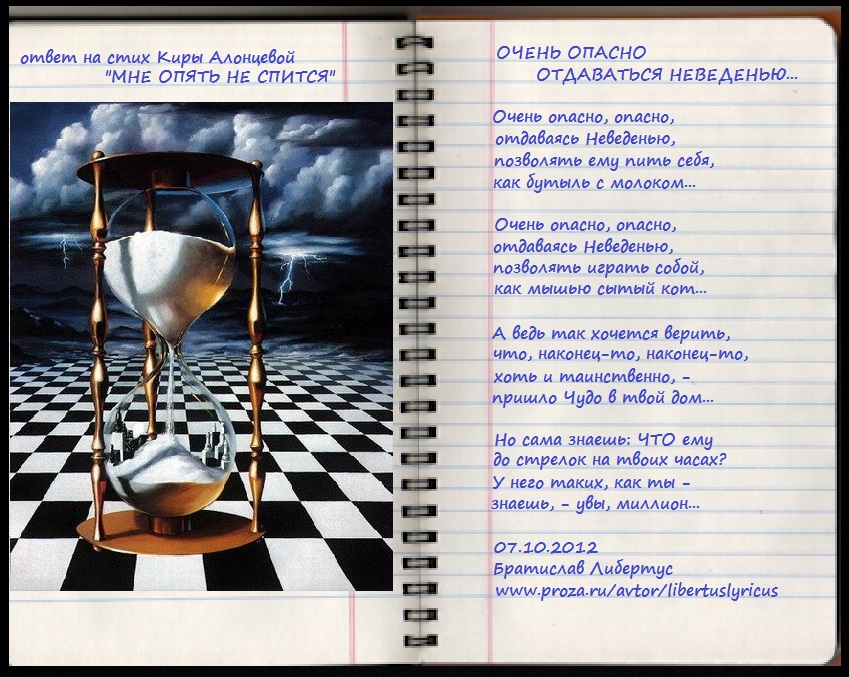 ответ на стих Киры Алонцевой
"МНЕ ОПЯТЬ НЕ СПИТСЯ"
ОЧЕНЬ ОПАСНО
ОТДАВАТЬСЯ НЕВЕДЕНЬЮ...
Очень опасно, опасно,
отдаваясь Неведенью,
позволять ему пить себя,
как бутыль с молоком...
Очень опасно, опасно,
отдаваясь Неведенью,
позволять играть собой,
как мышью сытый кот...
А ведь так хочется верить,
что, наконец-то, наконец-то,
хоть и таинственно, -
пришло Чудо в твой дом...
Но сама знаешь: ЧТО ему
до стрелок на твоих часах?
У него таких, как ты -
знаешь, - увы, миллион...
07.10.2012
Братислав Либертус
www.proza.ru/avtor/libertuslyricus